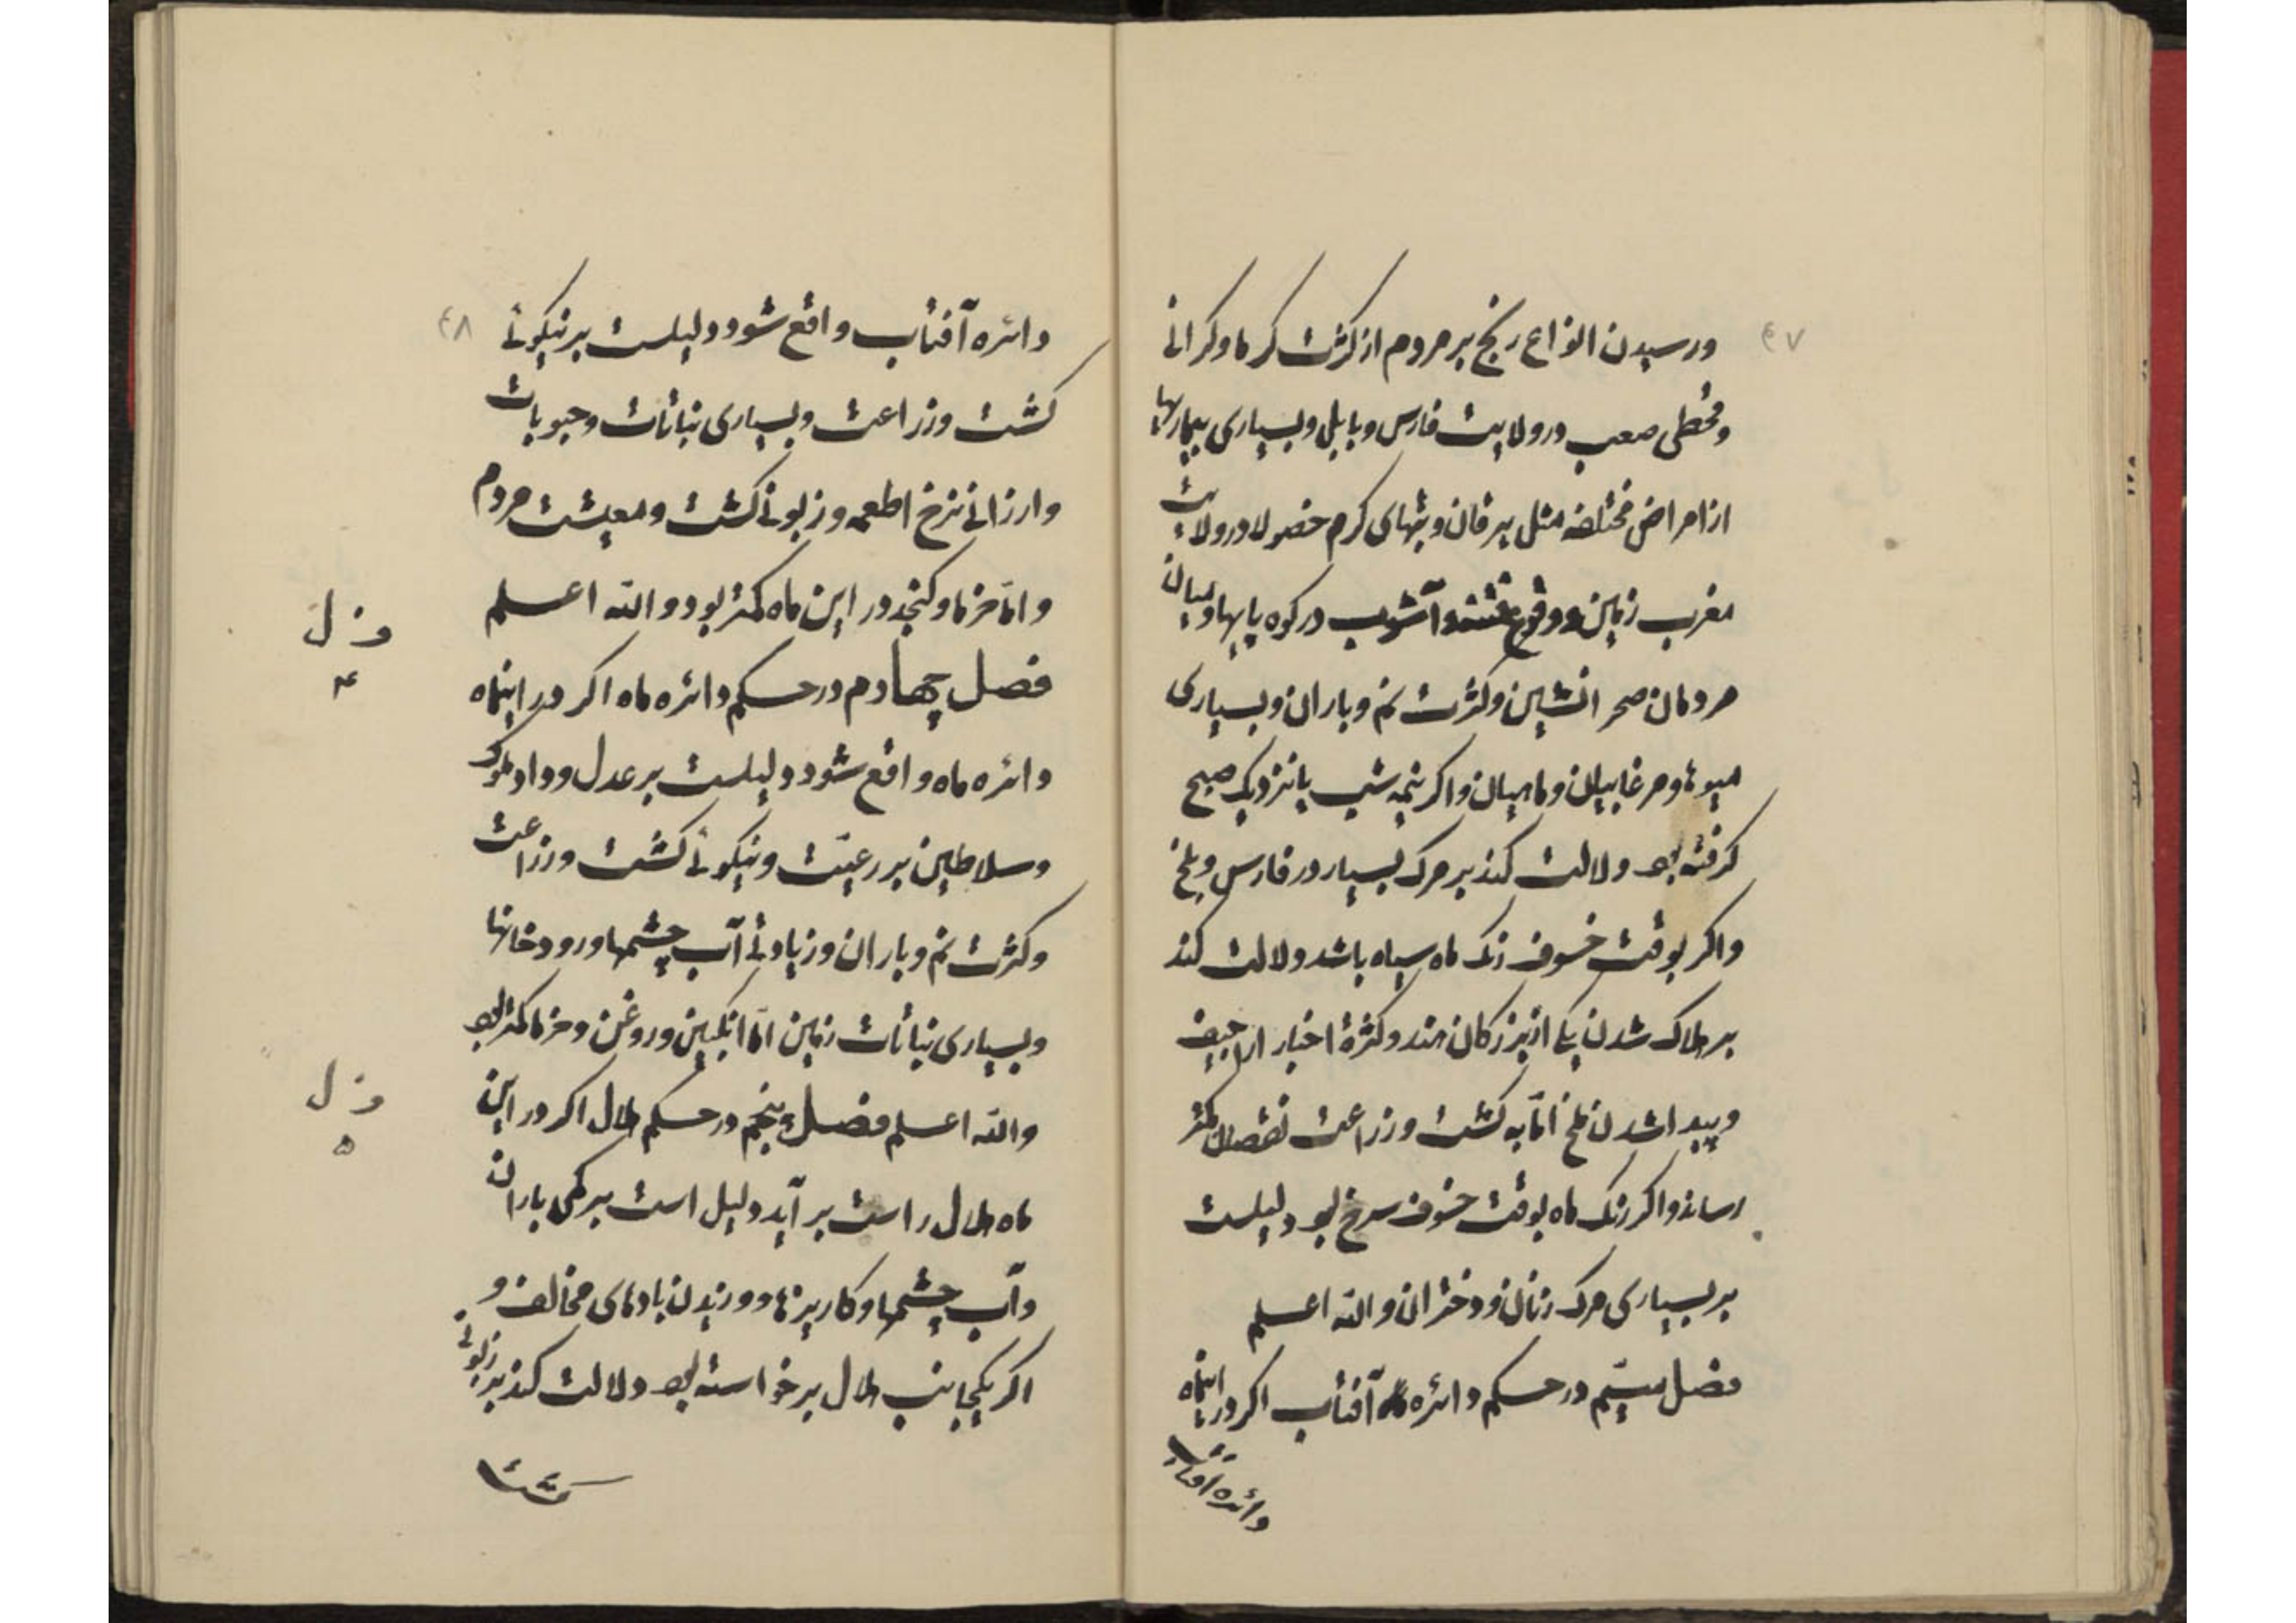 ٤٧
ورسیدن انواع رنج بر مردم از کثرت کرما وکرانی
وقحطی صعب در ولایت فارس و بابل و بسیاری بیماریها
از امراض مختلفه مثل یرقان و تبهای کرم خصولا در ولایت
مغرب زمین و وقوع فتنه و آشوب در کوه پایها و میان
مردمان صحرا نشین وکثرت نم و باران و بسیاری
میوها و مرغابیان و ماهیان واکر نیمه شب یا نزدیک صبح
کرفته بود دلالت کند بر مرک بسیار در فارس و بلخ
واکر بوقت خسوف رنک ماه سیاه باشد دلالت کند
بر هلاک شدن یکی از بزرکان هند وکثرة اخبار اراجیف
و پیدا شدن ملخ امّا به کشت و زراعت نقصان کمتر
رساند واکر رنک ماه بوقت خسوف سرخ بود دلیلست
بر بسیاری مرک زنان و دختران والله اعلم
فصل سیّم در حکم دائره آفتاب اکر در اینماه
دائره آفتاب
٤٨
دائره آفتاب واقع شود دلیلست بر نیکوئی
کشت و زراعت و بسیاری نباتات و حبوبات
وارزانی نرخ اطعمه و زبونی کشت و معیشت مردم
وامّا خرما وکنجد در این ماه کمتر بود والله اعلم
فصل چهارم در حکم دائره ماه اکر در اینماه
ف ل
۴
دائره ماه واقع شود دلیلست بر عدل وداد ملوک
وسلاطین بر رعیّت و نیکوئی کشت و زراعت
وکثرت نم و باران و زیادتی آب چشمها و رودخانها
و بسیاری نباتات زمین امّا انکبین و روغن و خرما کمتر بود
والله اعلم فصل پنجم در حکم هلال اکر در این
ف ل
۵
ماه هلال راست بر آید دلیل است بر کمی باران
وآب چشمها وکاریزها و وزیدن بادهای مخالف و
اکر یکجانب هلال برخواسته بود دلالت کند بر زبونی
کشت